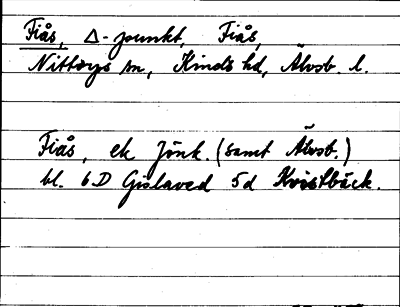 Fiås, Δ-punkt, Fiås,
Nittorps sn, Kinds hd, Älvsb. l.
Fiås, ek Jönk. (samt Älvsb.)
bl. 6D Gislaved 5d Kvistbäck.